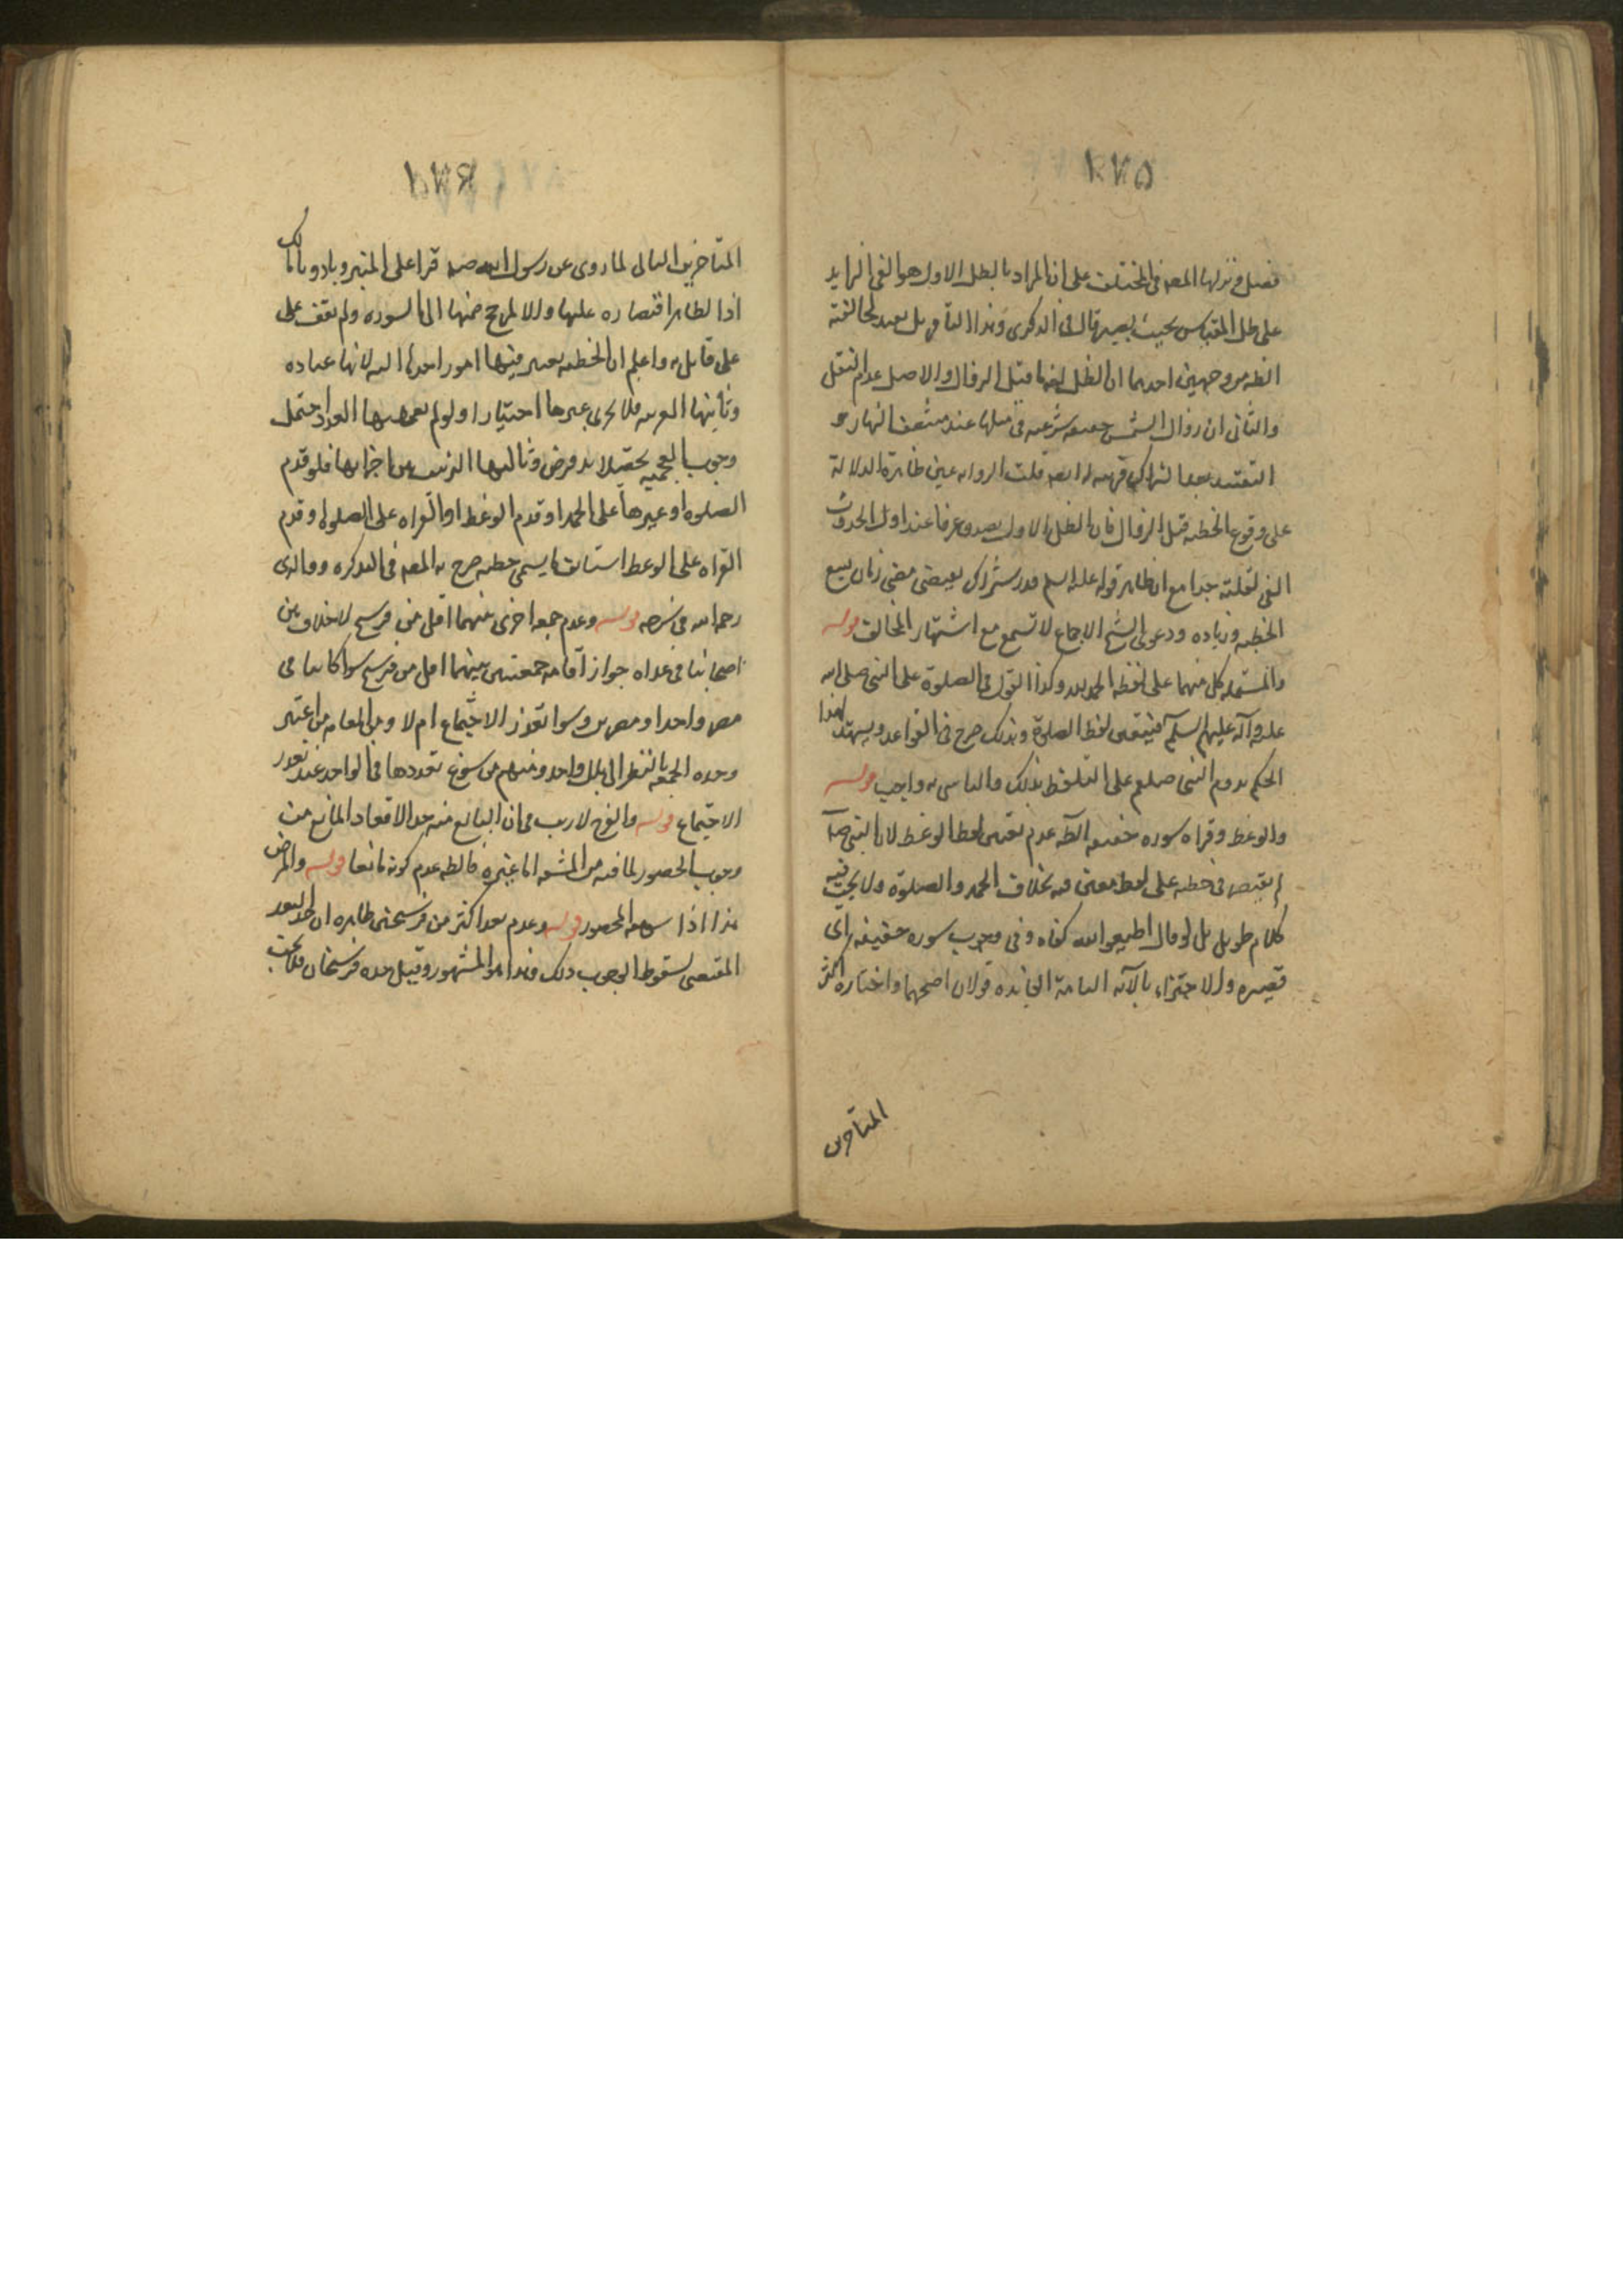 فضيل ونزلها المصه فى المختلف على ان المراد بالظل الاول هو الفى الزايد
على ظل المقياس بحيث يصير قال فى الذكرى وهذا التأويل بعيد لمخالفته
الظه من وجهين احدهما ان الظل لغه ما قبل الزوال والاصل عدم النقل
والثانى ان زوال الشمس حقيقه شرعيه فى ميلها عند منتصف النهار
التقييد بعدا شراك قرينه قلت الروايه عين ظاهرة الدلالة
على وقوع الخطبه قبل الزوال فان الظل الاول يصدق عرفا عند اول الحدوث
الفى لقلته جدا مع ان ظاهر قوله عله السلم قدر شراك يقتضى مضى زمان يسع
الخطبه وزياده ودعوى الشيخ الاجماع لا تسمع مع اشتهار المخالف قوله
والمشتمله كل منهما على لفظه الحمد لله وكذا القول فى الصلوة على النبى صلى الله
عله وآله عليهم السلم فيتعين لفظ الصلوة وبذلك صرح فى القواعد ويشهد لهذا
الحكم دوام النبى صلعم على التلفظ بذلك والتاسى به واجب قوله
والوعظ وقراه سوره خفيفه الظه عدم تعين لفظ الوعظ لان النبى ص
لم يقتصر فى خطبه على لفظ معين فيه بخلاف الحمد والصلوة ولا يجب فيه
كلام طويل بل لو قال اطيعوا الله كفاه وفى وجوب سوره خفيفه اى
قصيره والاجتزاء بالآيه التامة الفايده قولان اصحهما واختاره اكثر
المتأخرين
المتأخرين الثانى لما روى عن رسول الله صه قرا على المنبر ونادوا يا مالك
اذ الظاهر اقتصاره عليها والا لم يحتج منها الى السوره ولم نقف على
على قايل به واعلم ان الخطبه يعتبر فيها امور احدها النيه لانها عباده
وثانيها العربيه فلا يجزى غيرها اختيارا ولو لم يفهمها العدد احتمل
وجوب العجميه تحصيلا لفرض وثالثها الترتيب بين اجزايها فلو قدم
الصلوه او غيرها على الحمد او قدم الوعظ او القراه على الصلوه او قدم
القراه على الوعظ استانف ما يسمى خطبه صرح به المصه فى التذكره ووالدى
رحمه الله فى شرحه قوله وعدم جمعه اخرى بينهما اقل من فرسخ لا خلاف بين
اصحابنا فى عدم جواز اقامه جمعتين بينهما اقل من فرسخ سوا كانتا فى
مصر واحد او مصرين وسوا تعذر الاجتماع ام لا ومن العامه من اعتبر
وحده الجمعه بالنظر الى بلد واحد ومنهم من سوغ تعددها فى الواحد عند تعذر
الاجتماع قوله والعرج لا ريب فى ان البالغ منه حد الاقعاد المانع من
وجوب الحضور لما فيه من المشقه اما غيره فالظه عدم كونه مانعا قوله والمرض
هذا اذا الحضور قوله وعدم بعد اكثر من فرسخين ظاهره ان حد البعد
المقتضى لسقوط الوجوب ذلك وهذا هو المشهور وقيل حده فرسخان فلا تجب